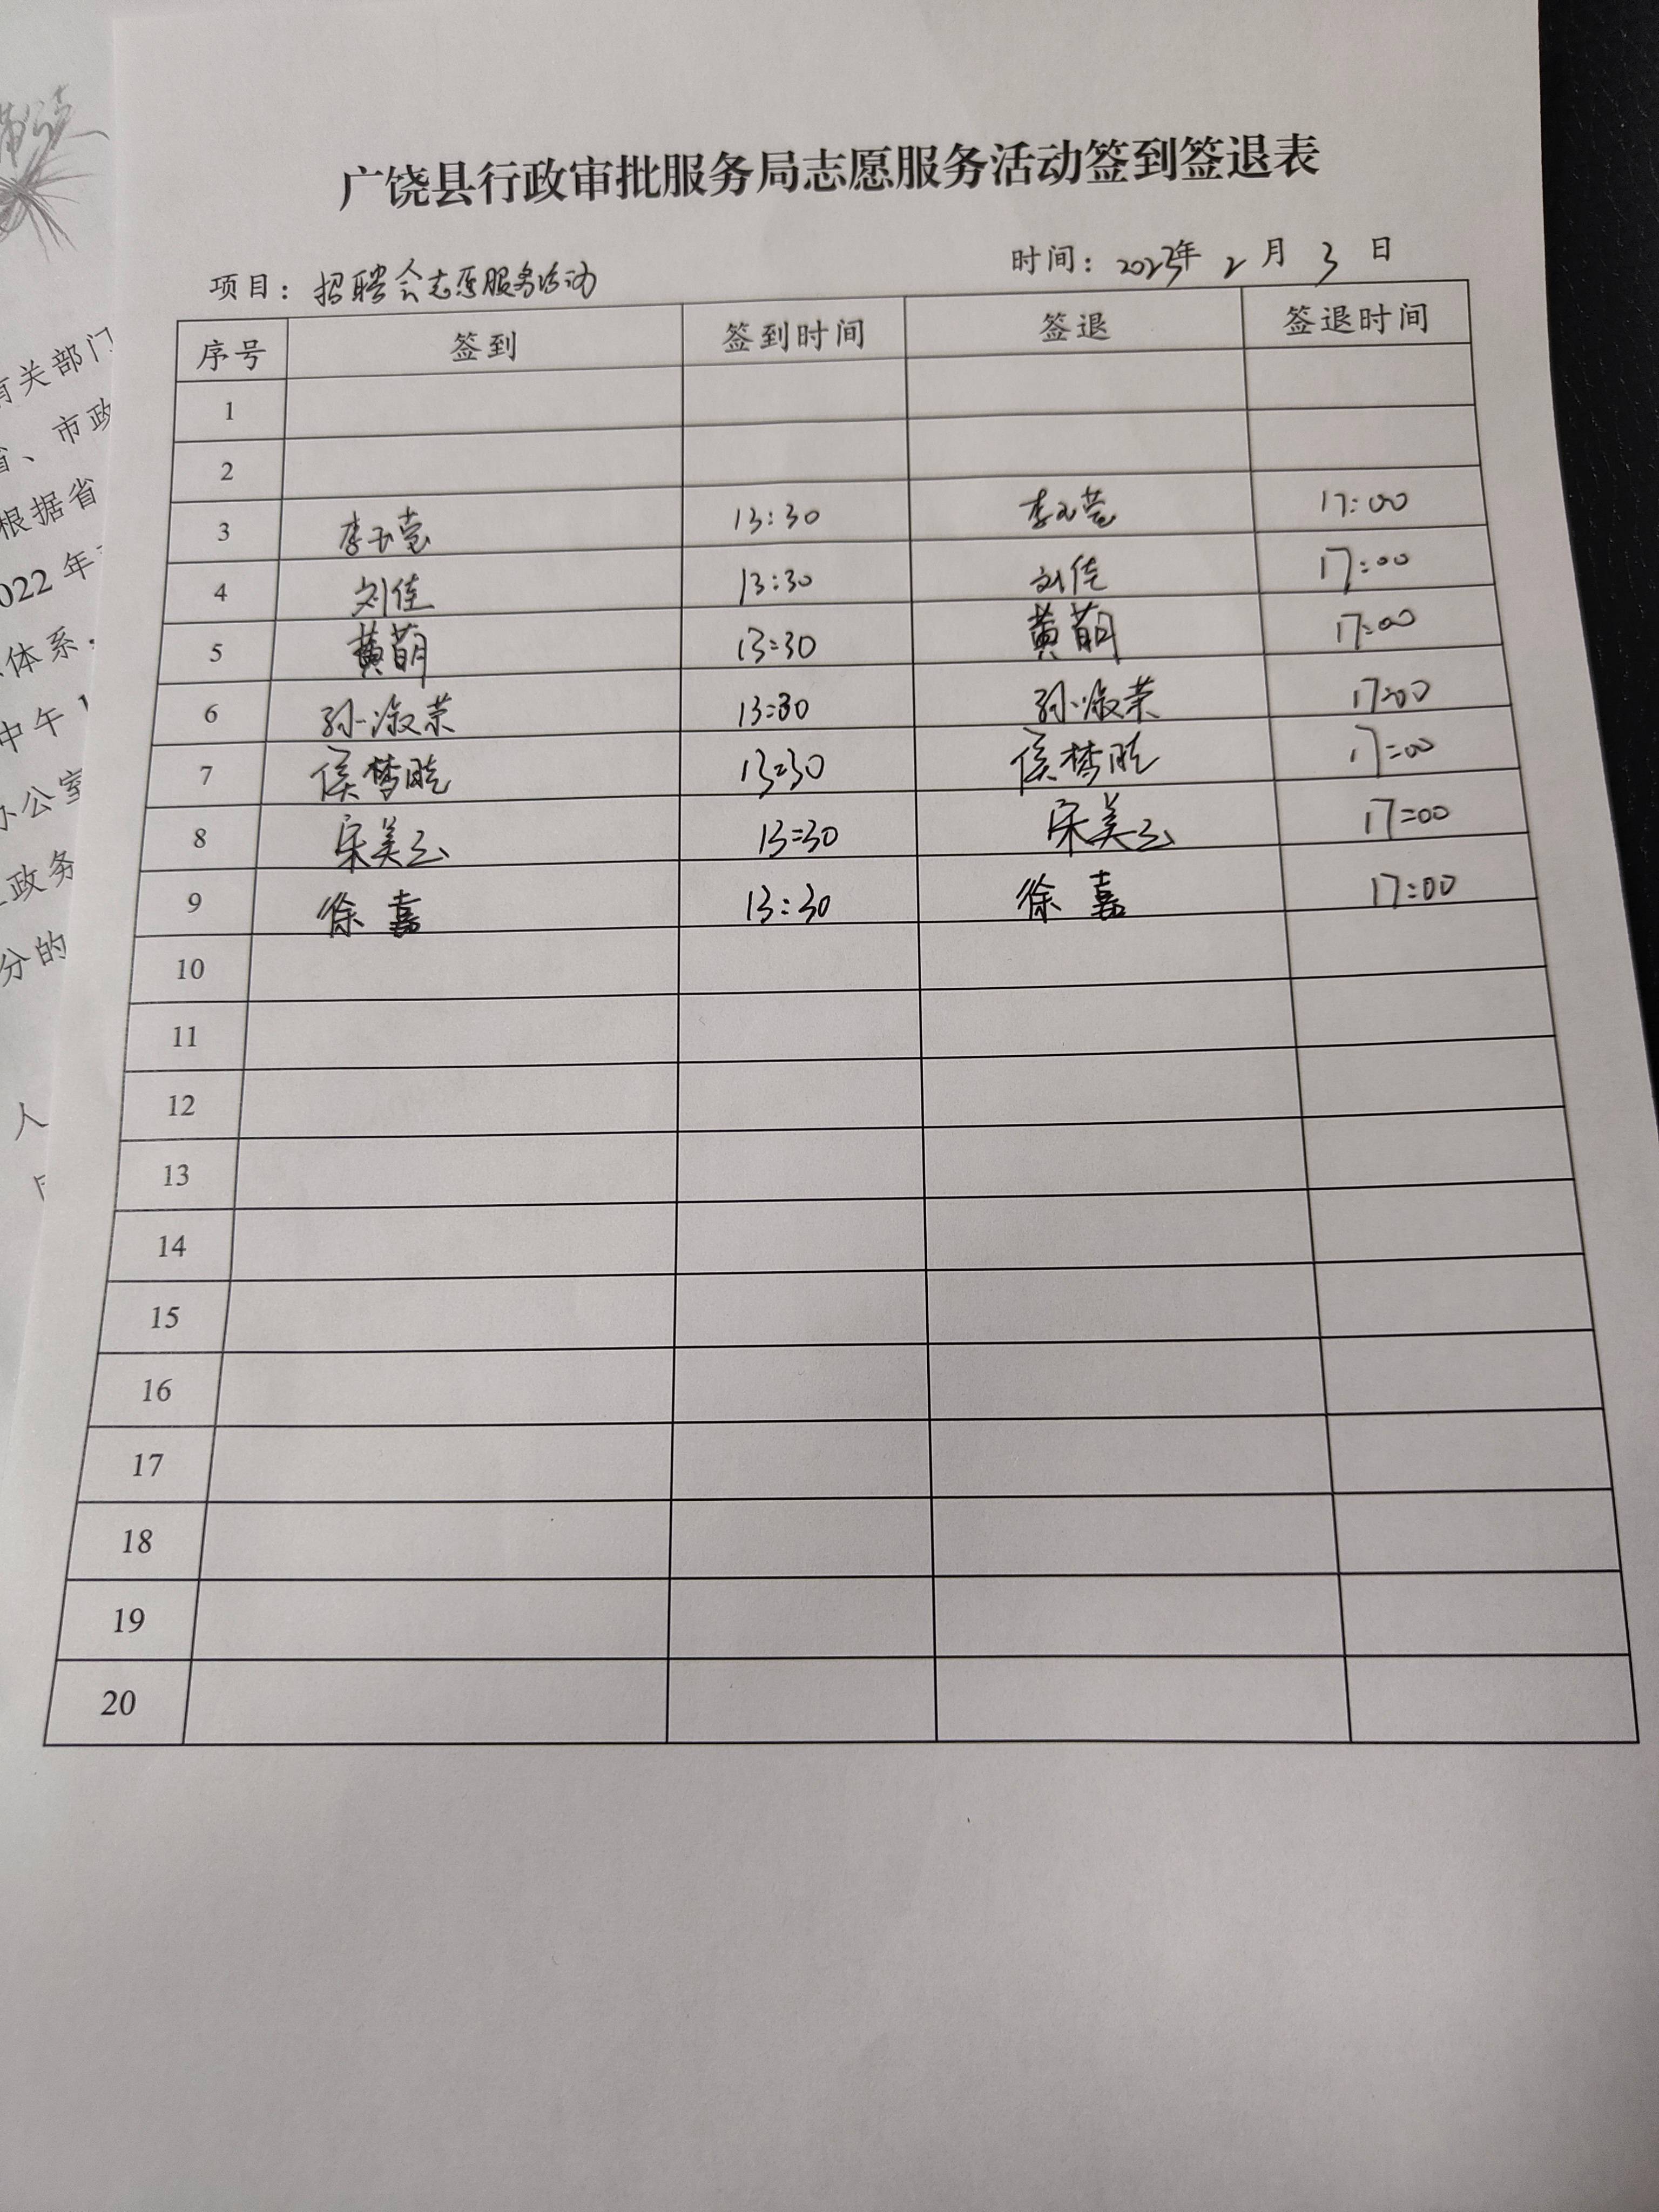 广饶县行政审批服务局志愿服务活动签到签退表
项目：招聘会志愿服务活动 时间：2023年 2 月 3 日
序号 签到 签到时间 签退 签退时间
1
2
3 李玉莹 13:30 李玉莹 17:00
4 刘佳 13:30 刘佳 17:00
5 黄萌 13:30 黄萌 17:00
6 孙淑荣 13:30 孙淑荣 17:00
7 侯梦晓 13:30 侯梦晓 17:00
8 宋美云 13:30 宋美云 17:00
9 徐嘉 13:30 徐嘉 17:00
10
11
12
13
14
15
16
17
18
19
20
有关部门
、市政
根据省
022 年
体系，
中午 1
办公室
政务
分的
人